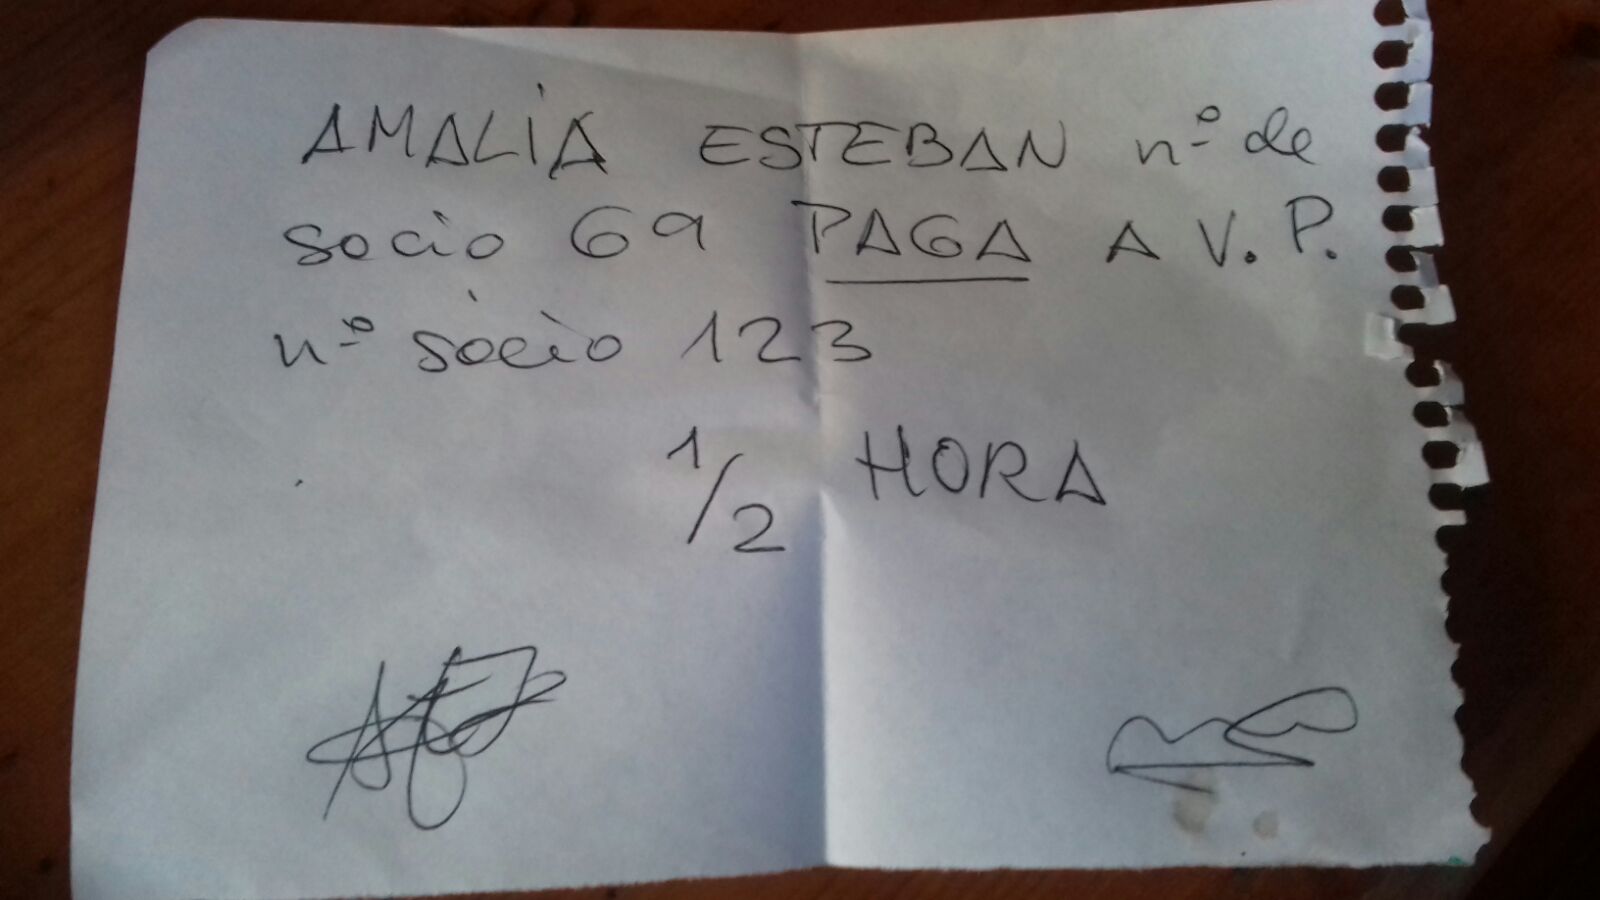 AMALIA ESTEBAN nº de
socio 69 PAGA A V.P.
nº socio 123
1/2 HORA